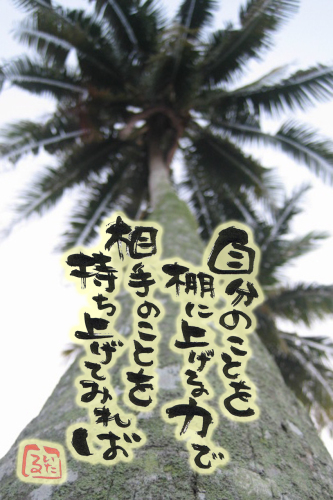 自分のことを
棚に上げる力で
相手のことを
持ち上げてみれば